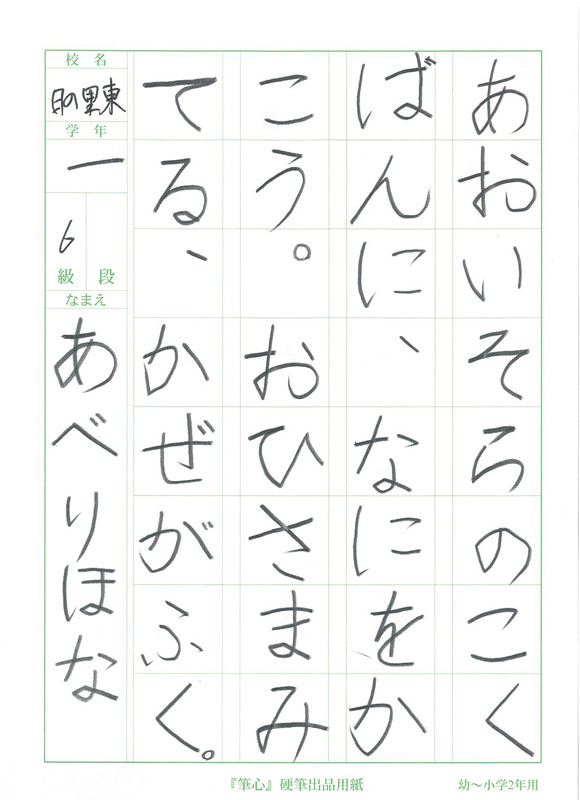 あおいそらのこく
ばんに、なにをか
こう。おひさまみ
てる、かぜがふく。
校名
日の里東
学年
一
6
級 段
なまえ
あべりほな
『筆心』硬筆出品用紙
幼〜小学2年用